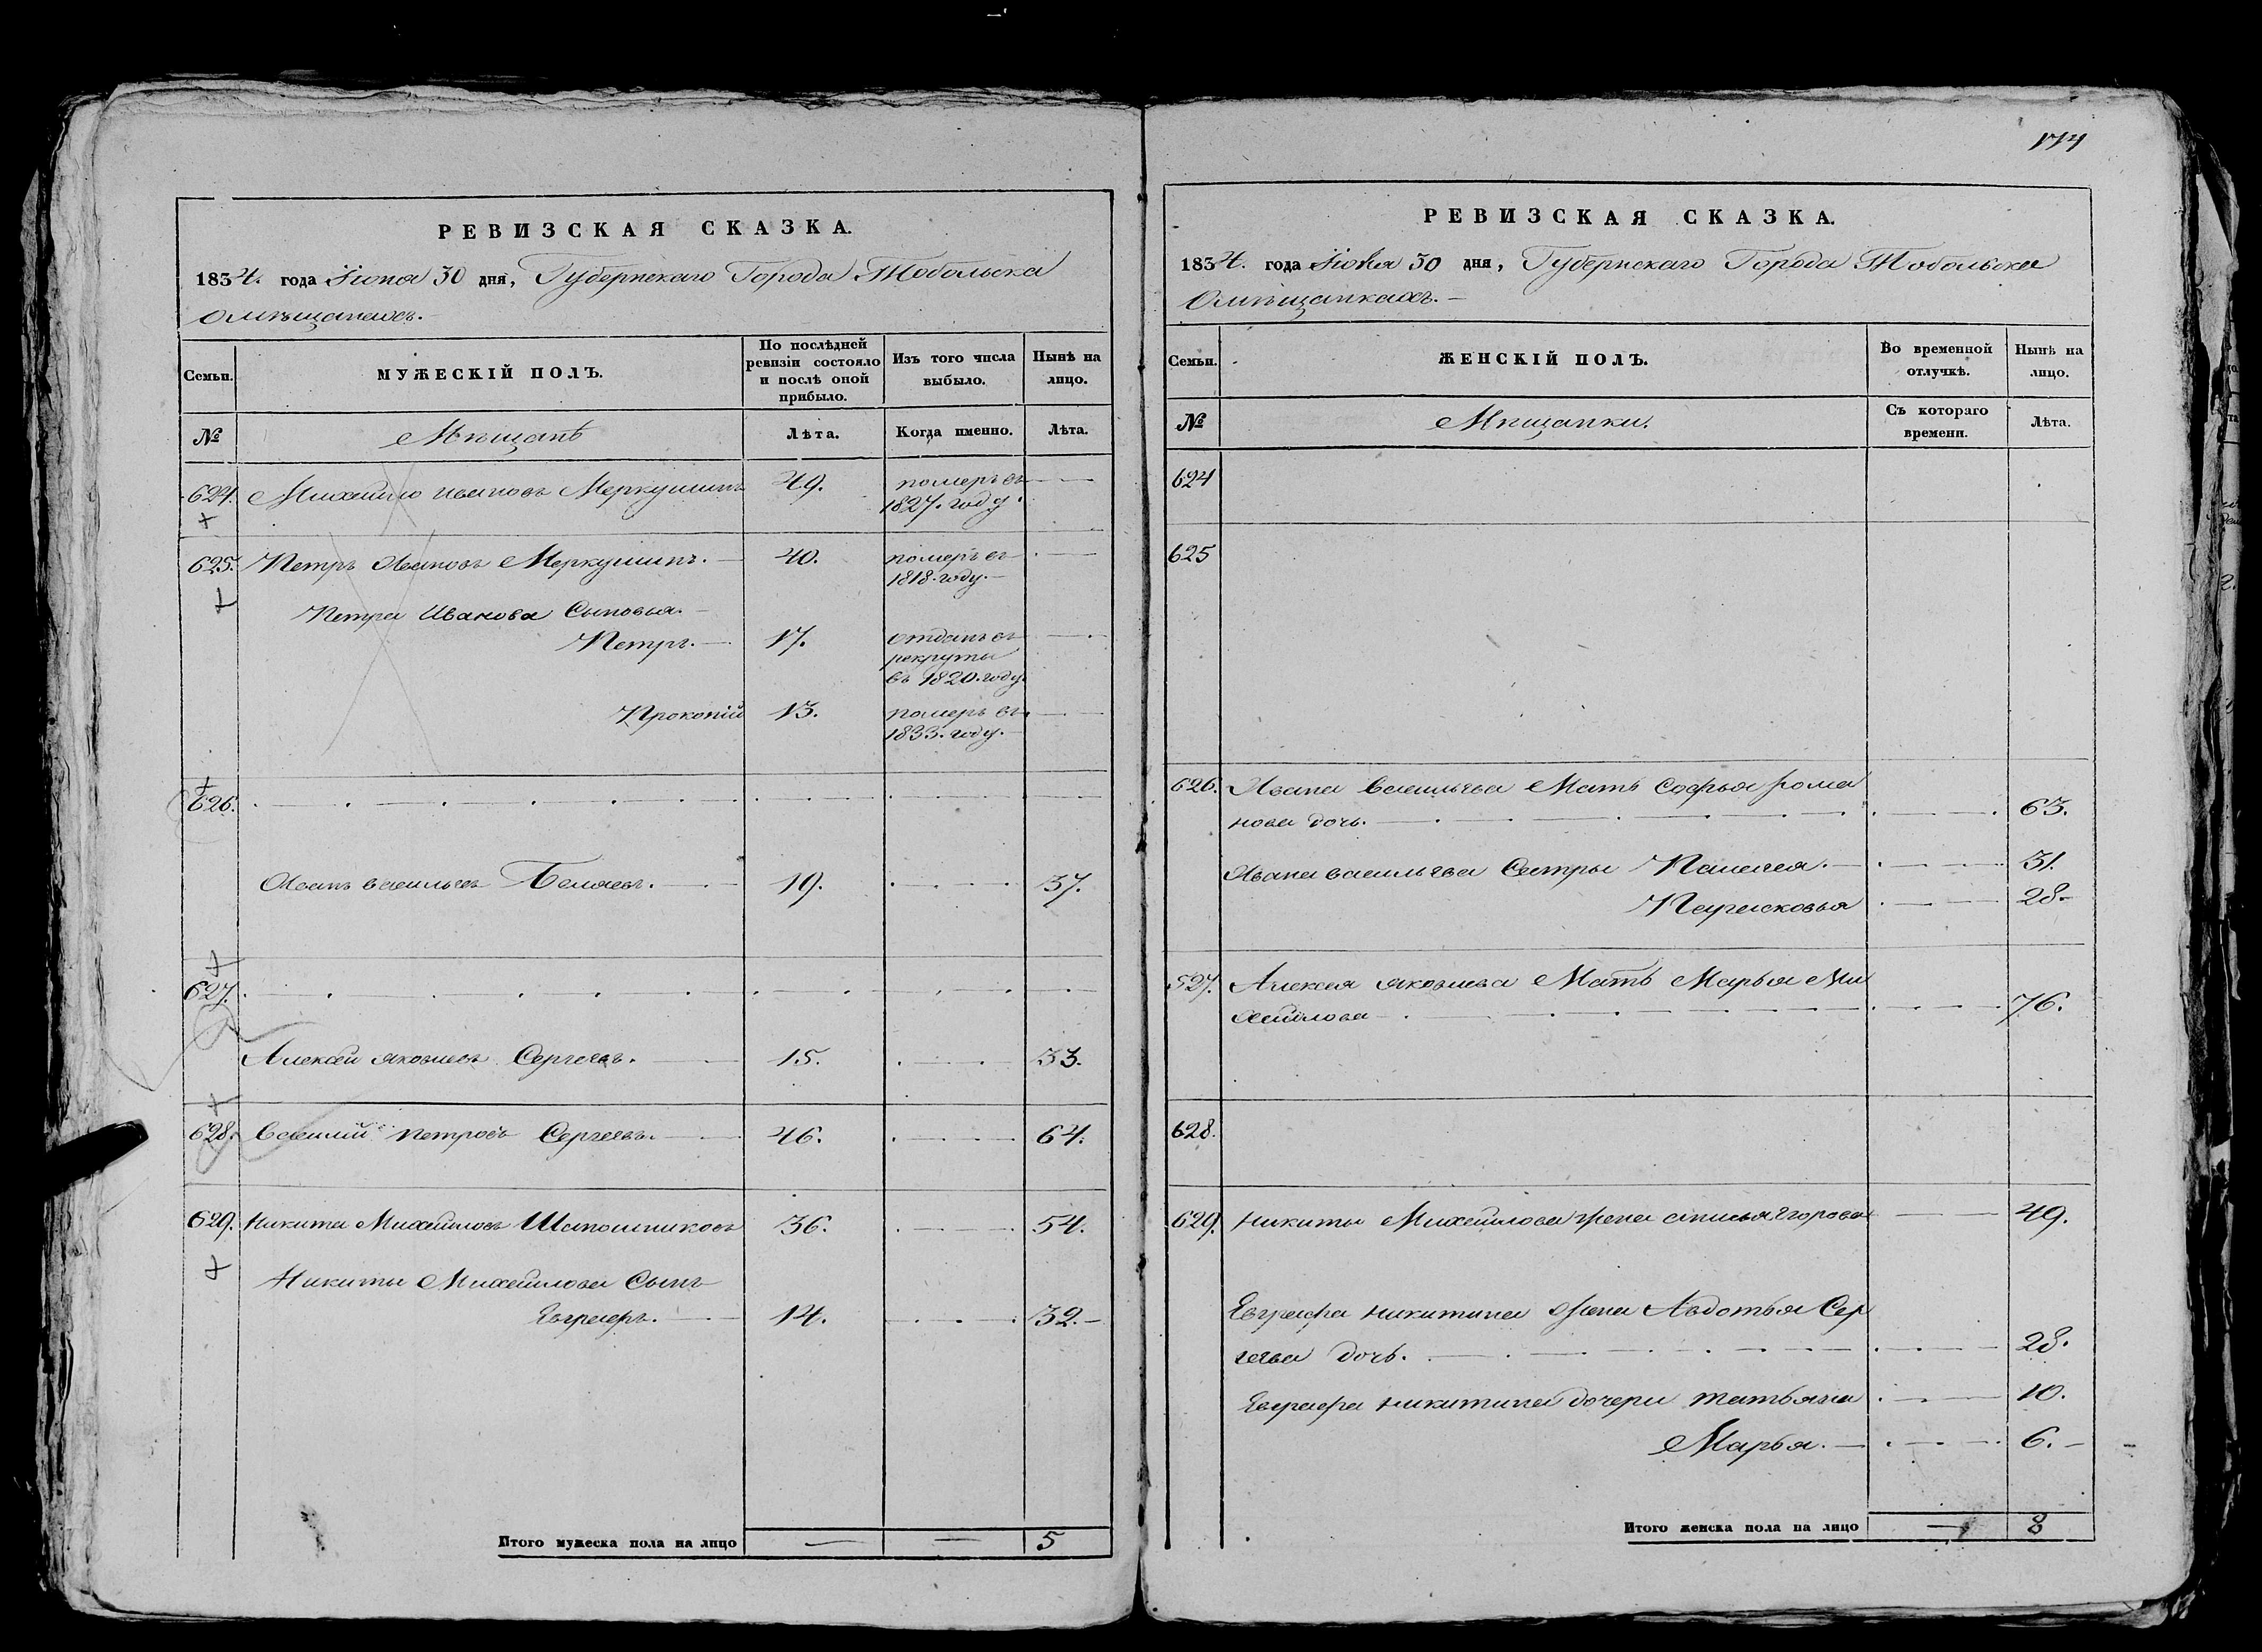 174
РЕВИЗСКАЯ СКАЗКА.
1834. года Іюня 30 дня, Губернскаго Города Тобольска
Омѣщанахъ.
Семьи. МУЖЕСКІЙ ПОЛЪ. По послѣдней ревизіи состояло и послѣ оной прибыло. Изъ того числа выбыло. Нынѣ на лицо.
№ Мѣщанѣ Лѣта. Когда именно. Лѣта.
624. Михайло ивановъ Меркушинъ 49. померъ въ
1827. году.
625. Петръ Ивановъ Меркушинъ. 40. померъ въ
1818. году.
Петра Иванова Сыновья.
Петръ. 17. отданъ въ
рекруты
въ 1820. году.
Прокопій 13. померъ въ
1833. году.
626.
Иванъ васильевъ Беляевъ. 19. 37.
627.
Алексѣй яковлевъ Сергеевъ. 15. 33.
628. василий петровъ Сергеевъ. 46. 64.
629. Никита Михайловъ Шапошниковъ 36. 54.
Никиты Михайлова Сынъ
Евграфъ. 14. 32.
Итого мужеска пола на лицо 5
РЕВИЗСКАЯ СКАЗКА.
1834. года Іюня 30 дня, Губернскаго Города Тобольска
Омѣщанкахъ.
Семьи. ЖЕНСКІЙ ПОЛЪ. Во временной отлучкѣ. Нынѣ на лицо.
№ Мѣщанки. Съ котораго времени. Лѣта.
624
625
626. Ивана васильева Мать Софья рома
нова дочь. 63.
Ивана васильева Сестры Палагея. 31.
Парасковья 28.
627. Алексея яковлева Мать Марья Ми
хайлова 76.
628.
629. никиты Михайлова жена Егорова 49.
Евграфа никитина жена Авдотья Сер
геева дочь. 28.
Евграфа никитина дочери татьяна 10.
Марья. 6.
Итого женска пола на лицо 8